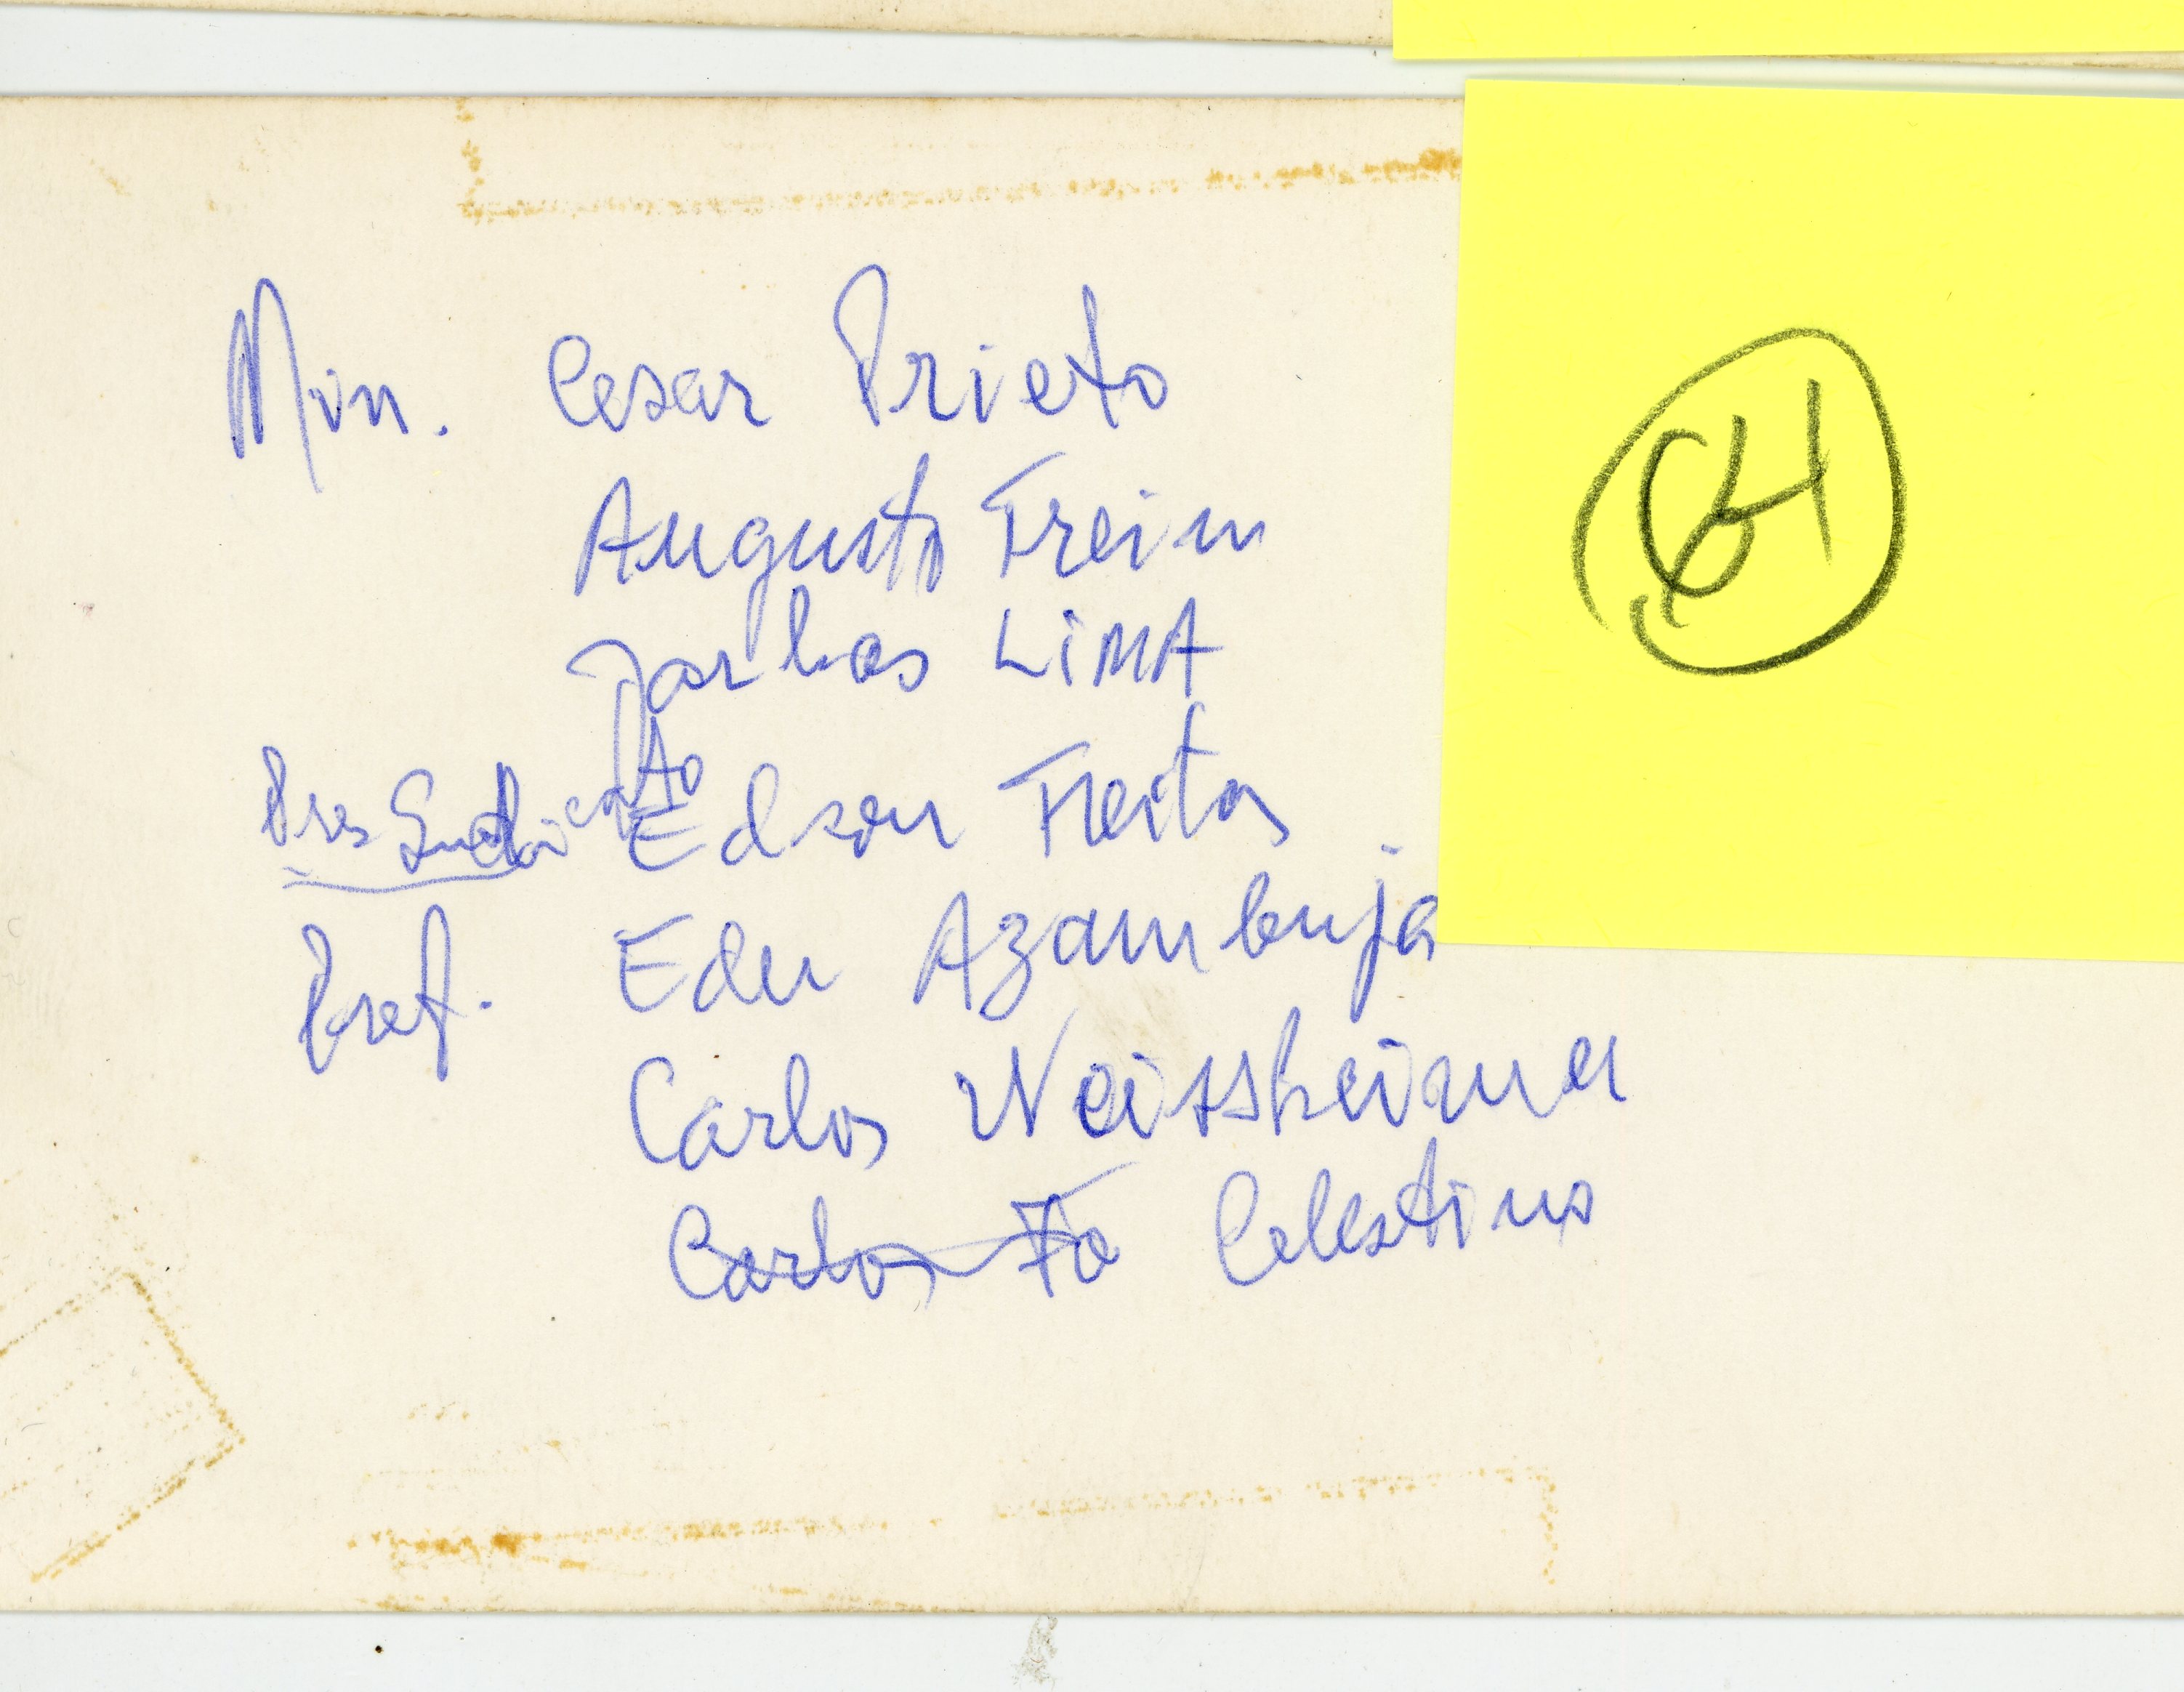 Min. Cesar Prieto
Augusto Trein
Jarbas LIMA
Pres Sindicato Edson Freitas
Pref. Eder Azambuja
Carlos Weissheimer
Carlos Fo Celestino
64